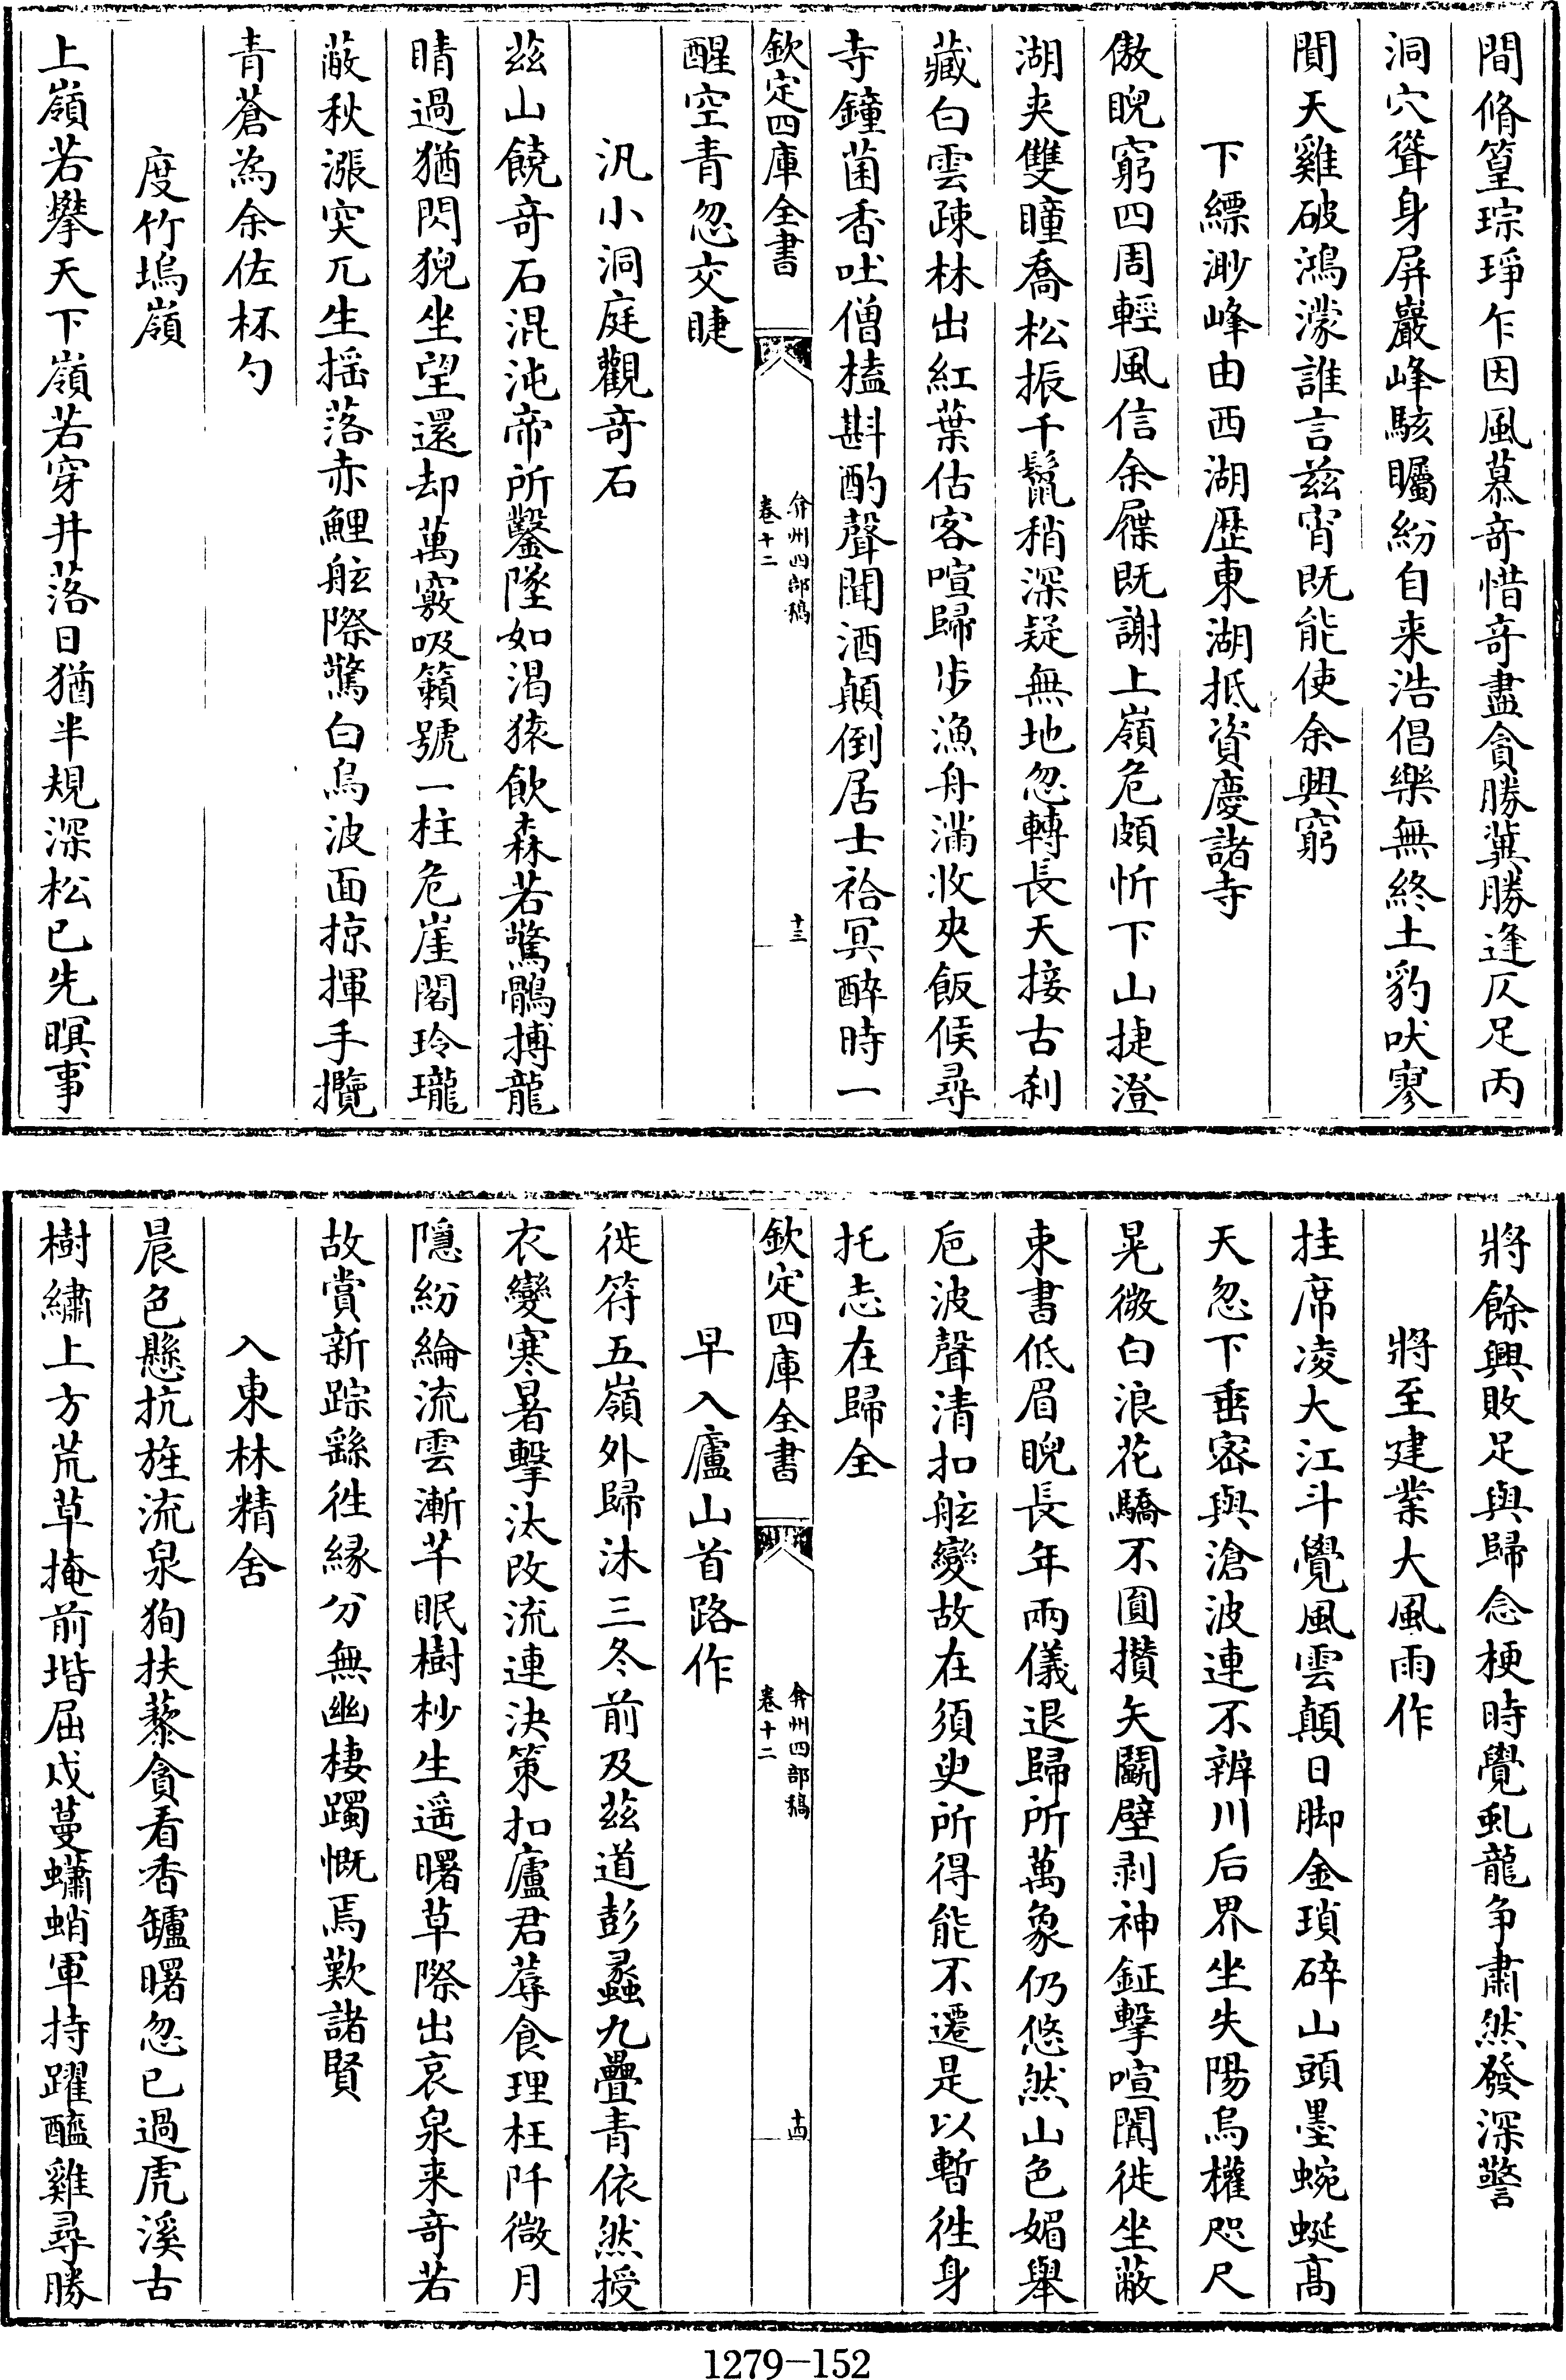 間脩篁琮琤乍因風慕奇惜奇盡貪勝冀勝逢仄足丙
洞穴聳身屏巖峰駭矚紛自来浩倡樂無終土豹吠寥
閴天雞破鴻濛誰言兹宵既能使余興窮
下縹渺峰由西湖歴東湖抵資慶諸寺
傲睨窮四周輕風信余屧既謝上嶺危頗忻下山捷澄
湖夾雙瞳喬松振千鬛稍深疑無地忽轉長天接古刹
藏白雲疎林出紅葉估客喧歸步漁舟滿收夾飯候尋
寺鐘菌香吐僧榼斟酌聲聞酒顛倒居士袷冥醉時一
欽定四庫全書
弇州四部稿
卷十二
十三
醒空青忽交睫
汎小洞庭觀奇石
兹山饒奇石混沌帝所鑿墜如渴猿飲森若驚鶻搏龍
睛過猶閃猊坐望還却萬竅吸籟號一柱危崖閣玲瓏
蔽秋漲突兀生揺落赤鯉舷際驚白鳥波面掠揮手攬
青蒼為余佐杯勺
度竹塢嶺
上嶺若攀天下嶺若穿井落日猶半規深松已先暝事
將餘興敗足與歸念梗時覺虬龍争肅然發深警
將至建業大風雨作
挂席凌大江斗覺風雲顛日脚金瑣碎山頭墨蜿蜒高
天忽下垂宻與滄波連不辨川后界坐失陽烏權咫尺
晃微白浪花驕不圓攢矢鬭壁剥神鉦擊喧闐徙坐蔽
東書低眉睨長年兩儀退歸所萬象仍悠然山色媚舉
巵波聲清扣舷變故在須臾所得能不遷是以暫徃身
托志在歸全
欽定四庫全書
弇州四部稿
卷十二
十四
早入廬山首路作
徙符五嶺外歸沐三冬前及兹道彭蠡九疊青依然授
衣變寒暑擊汰改流連決策扣廬君蓐食理枉阡微月
隱紛綸流雲漸芊眠樹杪生遥曙草際出哀泉来奇若
故賞新踪繇徃縁分無幽棲躅慨焉歎諸賢
入東林精舍
晨色懸抗旌流泉狥扶藜貪看香罏曙忽已過虎溪古
樹繡上方荒草掩前堦屈戍蔓蠨蛸軍持躍醯雞尋勝
1279－152